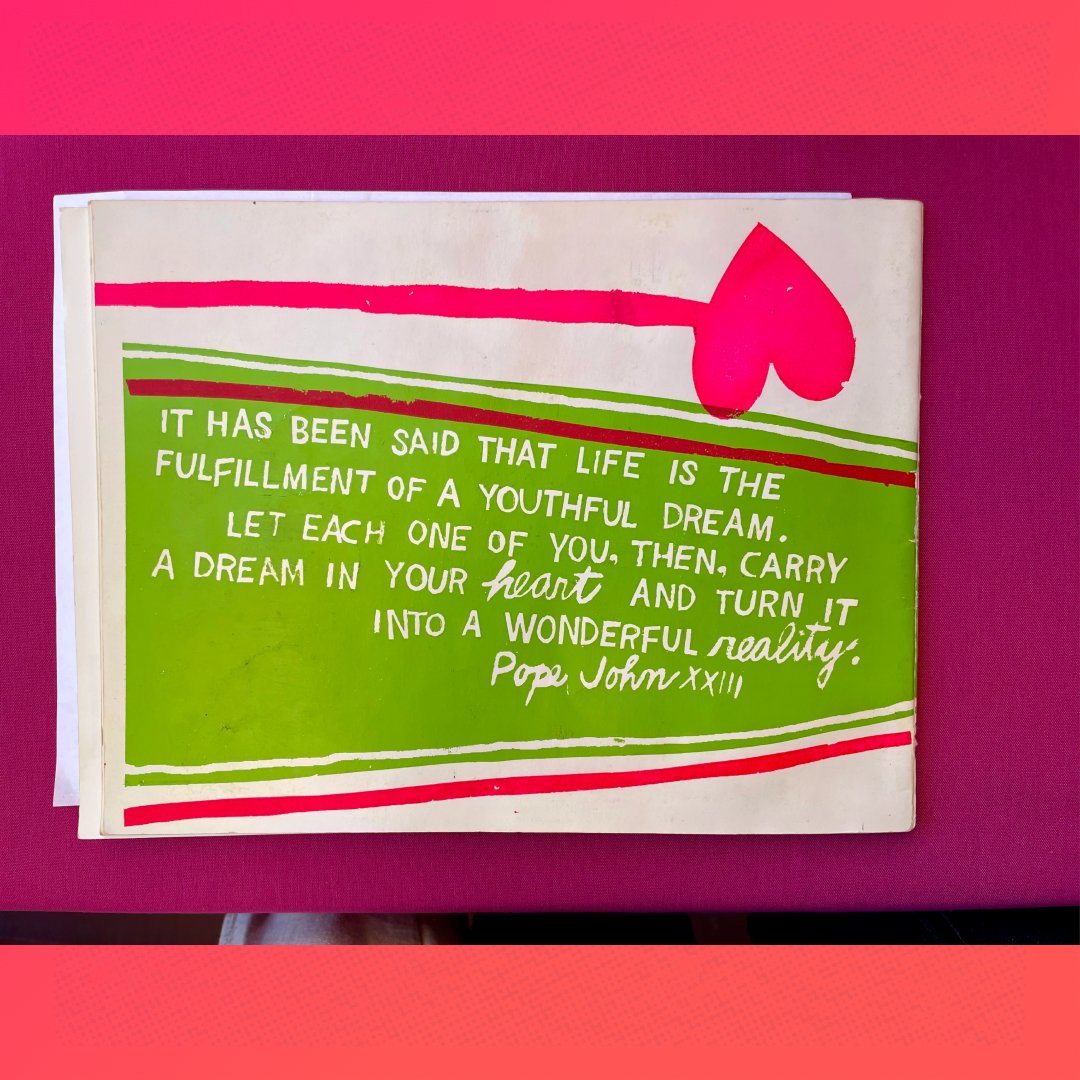 IT HAS BEEN SAID THAT LIFE IS THE
FULFILLMENT OF A YOUTHFUL DREAM.
LET EACH ONE OF YOU, THEN, CARRY
A DREAM IN YOUR heart AND TURN IT
INTO A WONDERFUL reality.
Pope John XXIII